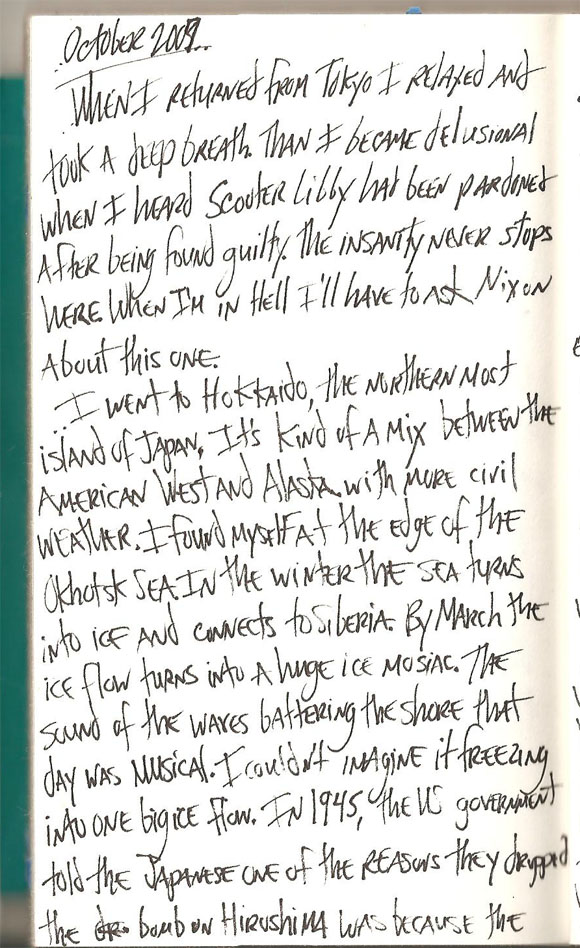 October 2009.
When I returned from Tokyo I relaxed and
took a deep breath. Than I became delusional
when I heard Scooter Libby had been pardoned
after being found guilty. The insanity never stops
here. When I'm in Hell I'll have to ask Nixon
about this one.
I went to Hokkaido, the northern most
island of Japan, It's kind of a mix between the
American West and Alaska with more civil
weather. I found myself at the edge of the
Okhotsk Sea. In the winter the sea turns
into ice and connects to Siberia. By March the
ice flow turns into a huge ice mosiac. The
sound of the waves battering the shore that
day was musical. I couldn't imagine it freezing
into one big ice flow. In 1945, the US government
told the Japanese one of the reasons they dropped
the bomb on Hiroshima was because the